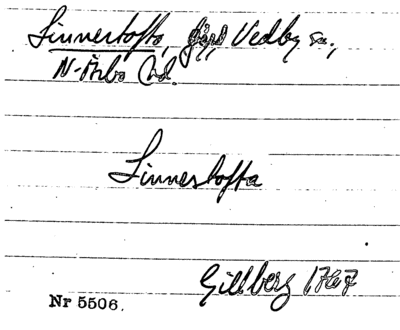 Linnestofta, gård Vedby sn.,
N-Åsbo hd.
Linnestofta
Gillberg 1767
Nr 5506.